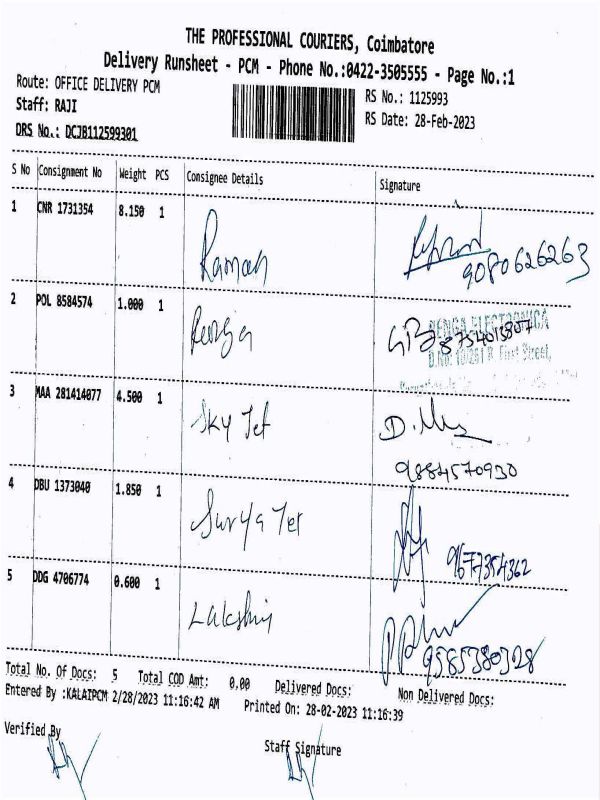 THE PROFESSIONAL COURIERS, Coimbatore
Delivery Runsheet - PCM - Phone No.:0422-3505555 - Page No.:1
Route: OFFICE DELIVERY PCM
Staff: RAJI
DRS No.: DCJB112599301
RS No.: 1125993
RS Date: 28-Feb-2023
S No Consignment No Weight PCS Consignee Details Signature
1 CNR 1731354 8.150 1 Raman 9080626263
2 POL 8584574 1.000 1 8754013807
RENGA ELECTRONICA
First Street,
3 MAA 281414077 4.500 1 Sky Jet
9884570930
4 DBU 1373040 1.850 1 Surya Jet 9677354362
5 DDG 4706774 0.600 1 Lakshmi 9585380328
Total No. Of Docs: 5 Total COD Amt: 0.00 Delivered Docs: Non Delivered Docs:
Entered By :KALAIPCM 2/28/2023 11:16:42 AM Printed On: 28-02-2023 11:16:39
Verified By
Staff Signature